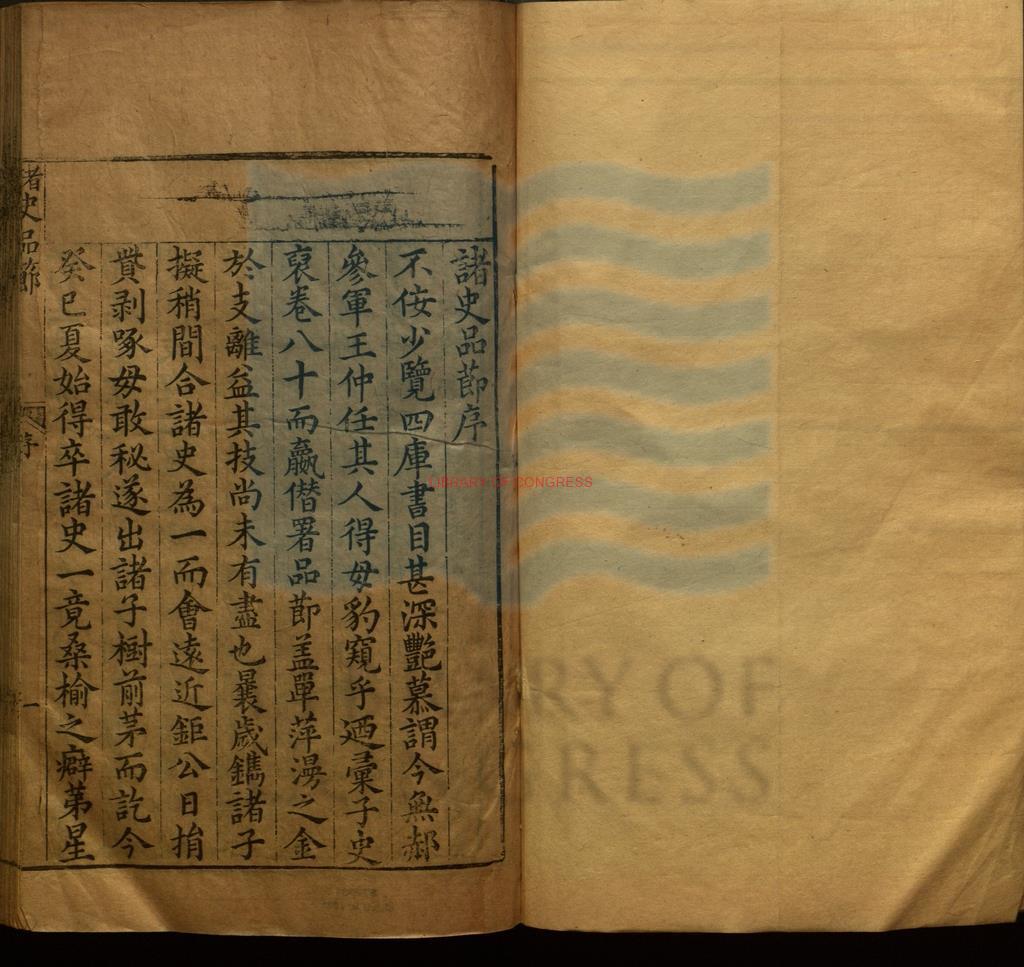 諸史品節序
不佞少覽四庫書目甚深艷慕謂今無郝
參軍王仲任其人得毋豹窺乎迺彙子史
裒卷八十而羸僭署品節盖單萍漫之金
於支離益其技尚未有盡也曩歲鐫諸子
擬稍間合諸史為一而會遠近鉅公日捐
貲剥啄毋敢秘遂出諸子樹前茅而訖今
癸巳夏始得卒諸史一竟桑榆之癖苐星
諸史品節
序
一
LIBRARY OF CONGRESS
RY OF
RESS